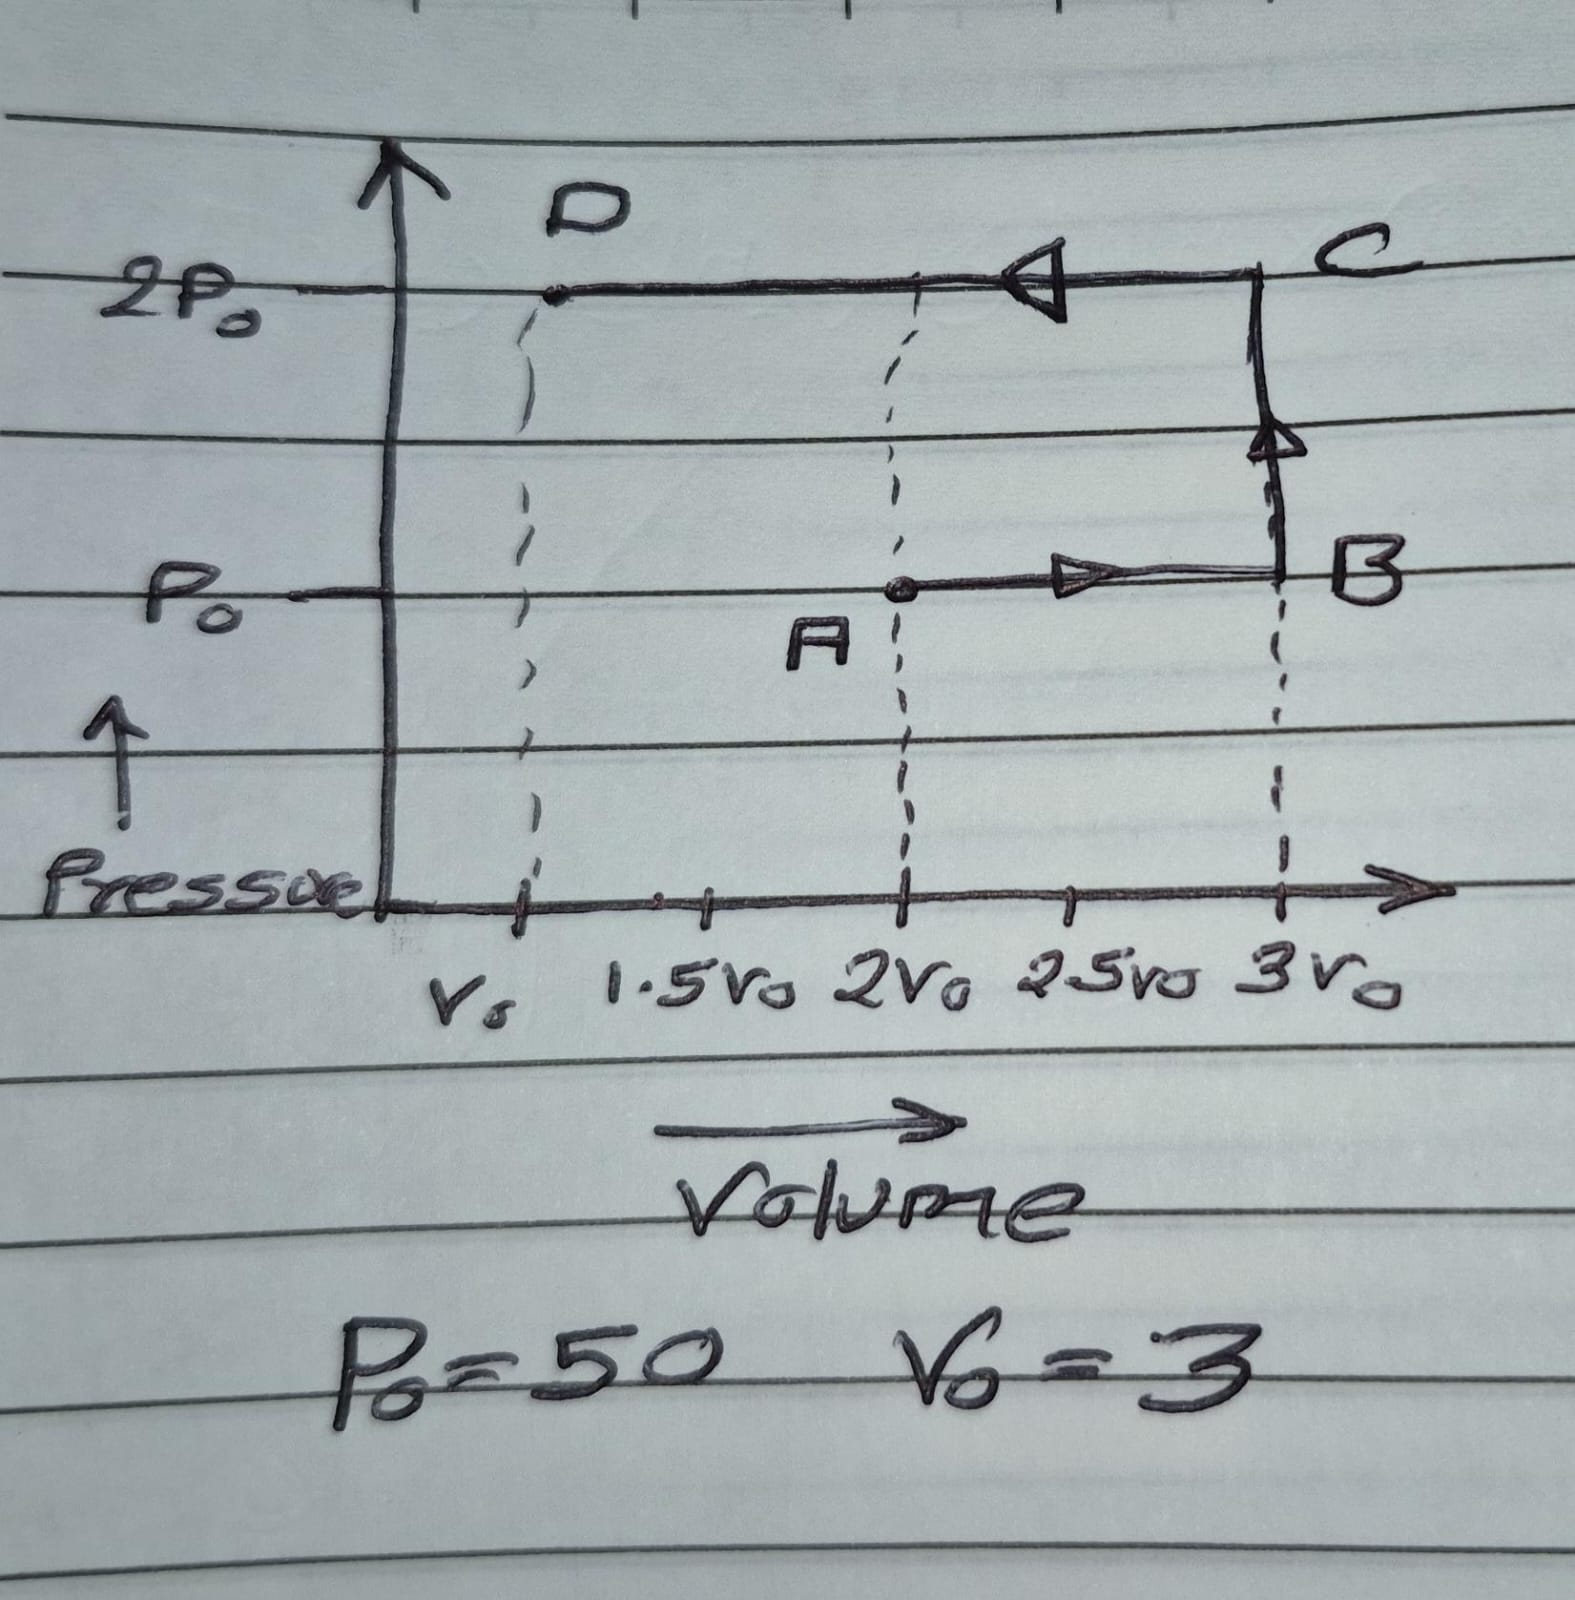 D
2P₀ C
P₀ B
A
Pressure
V₀ 1.5V₀ 2V₀ 2.5V₀ 3V₀
Volume
P₀=50 V₀=3